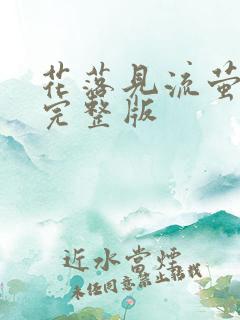 花落見流萤
完整版
近水当烟
未经同意禁止转载